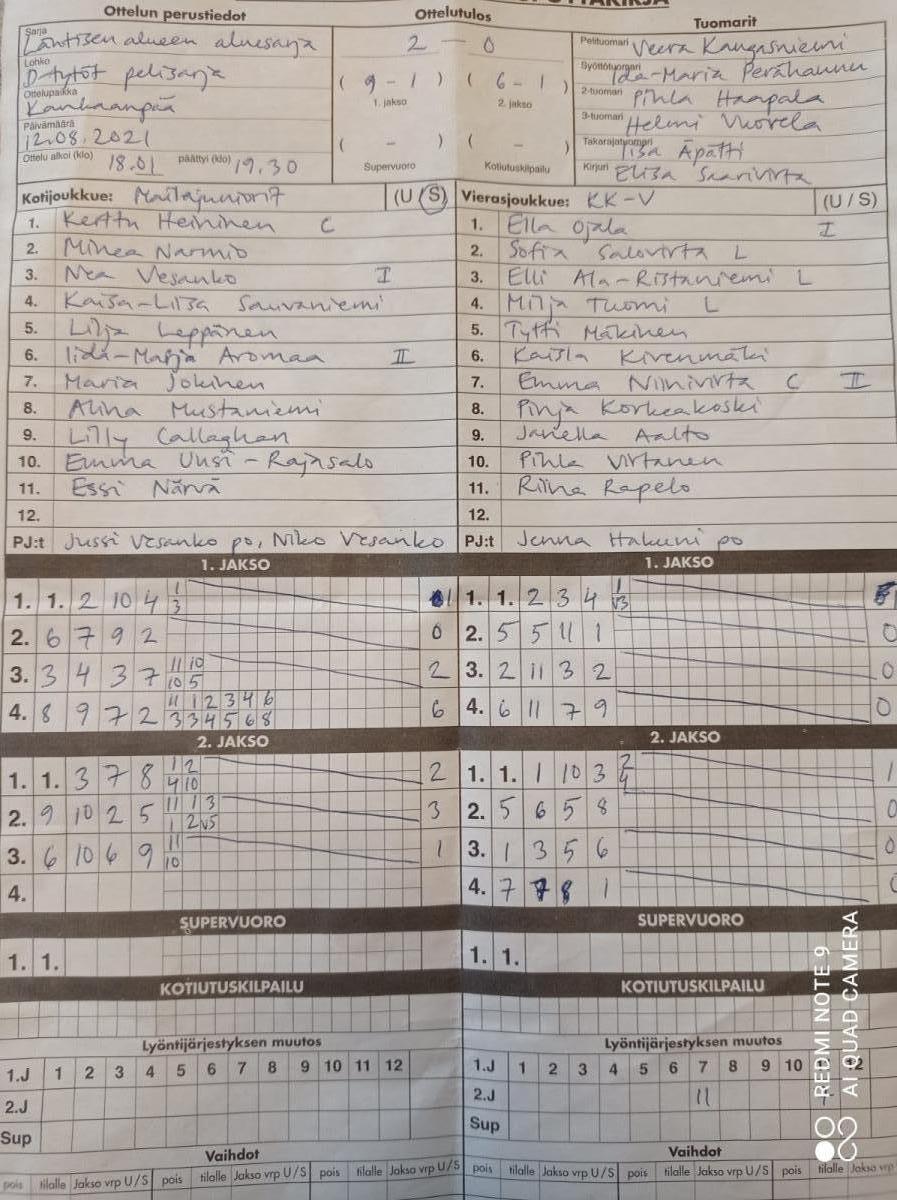 Ottelun perustiedot
Ottelutulos
Tuomarit
Sarja Läntisen alueen aluesarja
Lohko D-tytöt pelisarja
Ottelupaikka Kankaanpää
Päivämäärä 12.08.2021
Ottelu alkoi (klo) 18.01 päättyi (klo) 19.30
2 – 0
( 9 – 1 ) ( 6 – 1 )
1. jakso 2. jakso
( – ) ( – )
Supervuoro Kotiutuskilpailu
Pelituomari Veera Kangasniemi
Syöttötuomari Ida-Maria Perähannu
2-tuomari Pihla Haapala
3-tuomari Helmi Vuorela
Takarajatuomari Iisa Äpätti
Kirjuri Elisa Saarivirta
Kotijoukkue: Mailajuniorit (U / S)
1. Kerttu Heininen C
2. Minea Narmio
3. Nea Vesanko I
4. Kaisa-Liisa Sauvaniemi
5. Lilja Leppänen
6. Iida-Marja Aromaa II
7. Maria Jokinen
8. Alina Mustaniemi
9. Lilly Callaghan
10. Emma Uusi-Rajasalo
11. Essi Närvä
12.
PJ:t Jussi Vesanko po, Niko Vesanko
Vierasjoukkue: KK-V (U / S)
1. Ella Ojala I
2. Sofia Salovirta L
3. Elli Ala-Ristaniemi L
4. Milja Tuomi L
5. Tytti Mäkinen
6. Kaisla Kivenmäki
7. Emma Niinivirta C II
8. Pinja Korkeakoski
9. Janella Aalto
10. Pihla Virtanen
11. Riina Rapelo
12.
PJ:t Jenna Hakuni po
1. JAKSO
1. 1. 2 10 4 1 1
3
2. 6 7 9 2 0
3. 3 4 3 7 11 10 2
10 5
4. 8 9 7 2 11 1 2 3 4 6 6
3 3 4 5 6 8
2. JAKSO
1. 1. 3 7 8 1 2 2
4 10
2. 9 10 2 5 11 1 3 3
1 2 v5
3. 6 10 6 9 11 1
10
4.
SUPERVUORO
1. 1.
KOTIUTUSKILPAILU
Lyöntijärjestyksen muutos
1.J 1 2 3 4 5 6 7 8 9 10 11 12
2.J
Sup
Vaihdot
pois tilalle Jakso vrp U/S pois tilalle Jakso vrp U/S pois tilalle Jakso vrp U/S
1. JAKSO
1. 1. 2 3 4 1
v3
2. 5 5 11 1 0
3. 2 11 3 2 0
4. 6 11 7 9 0
2. JAKSO
1. 1. 1 10 3 2 1
4
2. 5 6 5 8 0
3. 1 3 5 6 0
4. 7 7 8 1 0
SUPERVUORO
1. 1.
KOTIUTUSKILPAILU
Lyöntijärjestyksen muutos
1.J 1 2 3 4 5 6 7 8 9 10 12
2.J 11
Sup
Vaihdot
pois tilalle Jakso vrp U/S pois tilalle Jakso vrp U/S pois tilalle Jakso vrp
REDMI NOTE 9
AI QUAD CAMERA